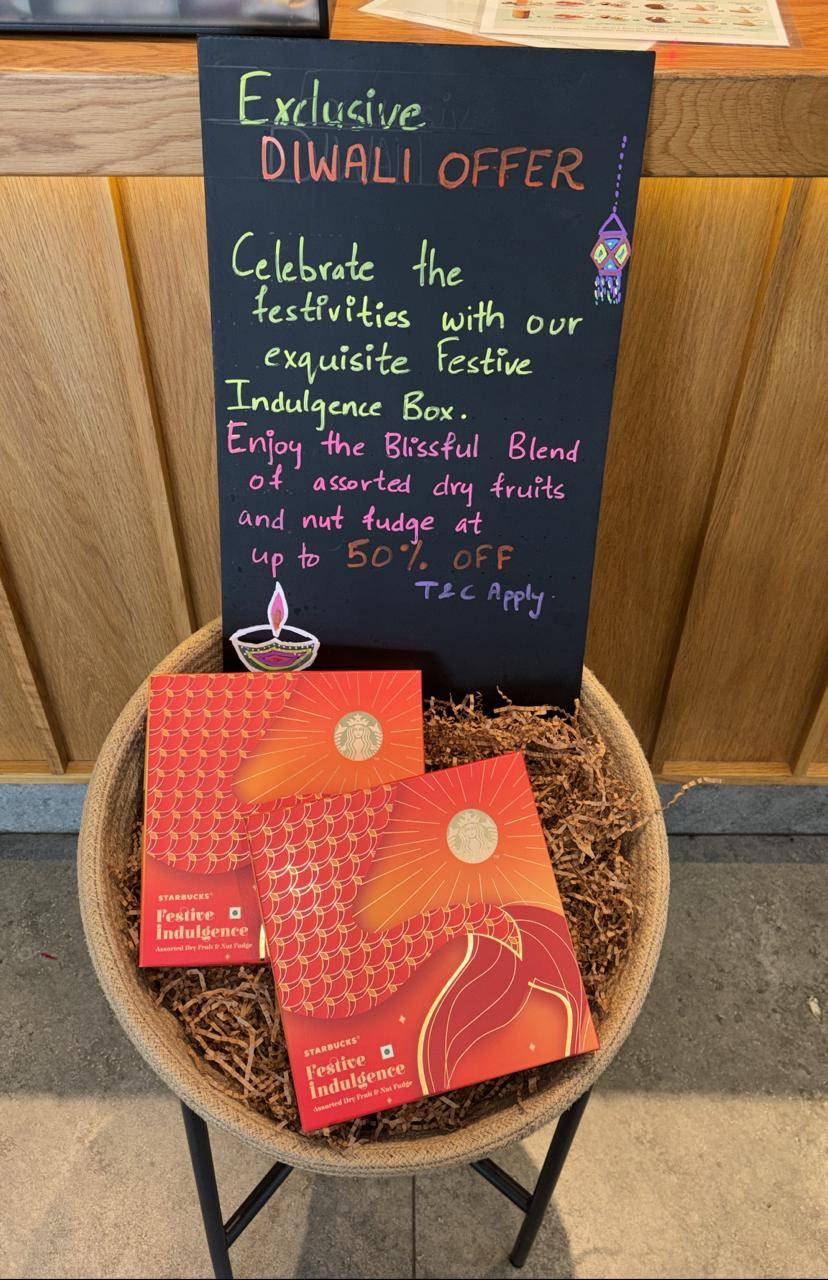 Exclusive
DIWALI OFFER
Celebrate the
festivities with our
exquisite Festive
Indulgence Box.
Enjoy the Blissful Blend
of assorted dry fruits
and nut fudge at
up to 50% OFF
T&C Apply.
STARBUCKS
Festive
Indulgence
Assorted Dry Fruit & Nut Fudge
STARBUCKS
Festive
Indulgence
Assorted Dry Fruit & Nut Fudge